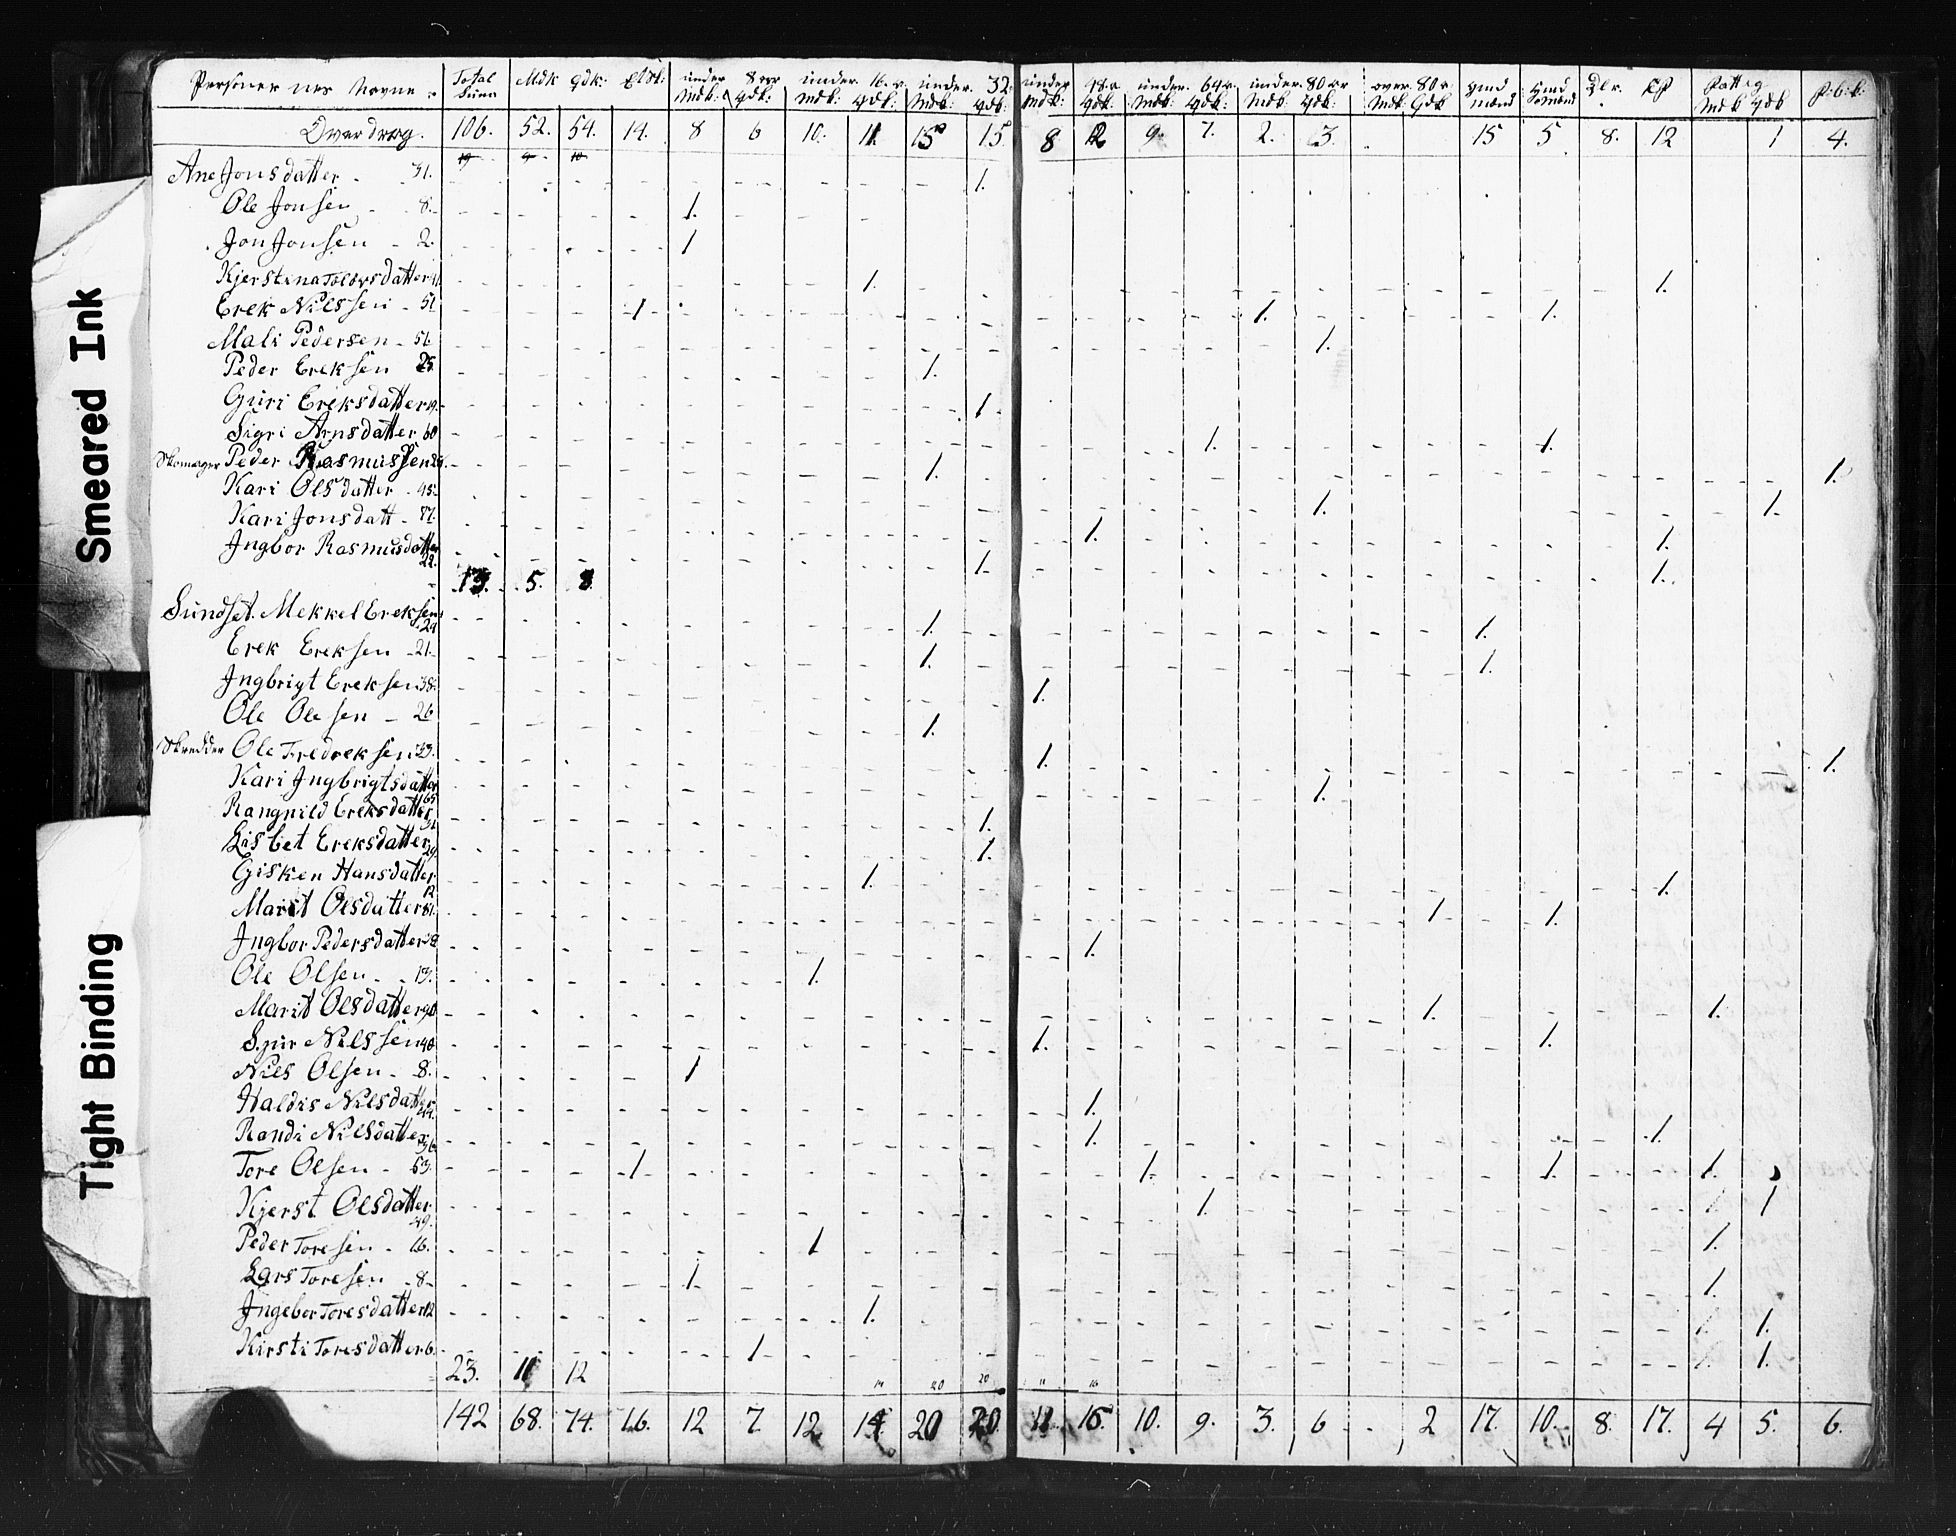 Smeared Ink
Tight Binding
Personernes Navne: Total Suma Mdk qdk: under 8 aar Mdk: qdk: under 16 Mdk: qdk: under 32 Mdk: qdk: under 48 Mdk: qdk: under 64 Mdk: qdk: under 80 aar Mdk: qdk: over 80 Mdk: qdk Mdk qdk
Overdrag. 106. 52. 54. 14. 8 6 10. 11. 15 15. 8 12 9. 7. 2. 3. 15 5 8. 12 1 4.
19 9 10
Ane Jonsdatter - 31. 1.
Ole Jonsen - 8. 1.
Jon Jonsen - 2. 1
Kjerstina 1. 1.
Erek Nilssen - 51 1 1. 1.
Mali Pedersen - 51 1.
Peder Ereksen 25 1.
Guri Ereksdatter 19. 1
Sigri Arnsdatter 60 1. 1.
Skomager Peder Rasmussen 1. 1.
Kari Olsdatter - 45 1. 1.
Kari Jonsdatt - 1. 1.
Ingbor Rasmusdatter 22. 1. 1.
13. 5. 8.
Sundset. Mekkel Ereksen 24 1. 1.
Erek Ereksen - 21 1. 1.
Ingbrigt Ereksen 38. 1.
Ole Olesen - 26 1.
Skredder Ole Fredreksen 33. 1. 1.
Kari Ingbrigtsdatter 65 1.
Rangnild Ereksdatter 31 1.
Lisbet Ereksdatter 29. 1.
Gisken Hansdatter 12 1. 1.
Marit Olsdatter 81. 1. 1.
Ingbor Pedersdatter 1.
Ole Olsen - 13. 1.
Marit Olsdatter 90 1. 1.
Nilssen 40 1. 1.
Nils Olsen - 8. 1
Haldis Nilsdatter 44. 1.
Randi Nilsdatter 36 1. 1.
Tore Olsen - 53. 1 1. 1. 1.
Kjerst Olsdatter 49. 1. 1
Peder Toresen - 16. 1 1.
Lars Toresen - 8 - 1. 1.
Ingebor Toresdatter 12 1. 1.
Kirsti Toresdatter 6 1 1.
23. 11 12
14 20 20 11 16
142 68. 74. 16. 12 7. 12 14 20 20. 11 16. 10. 9. 3. 6 2 17. 10. 8. 17. 4 5. 6.